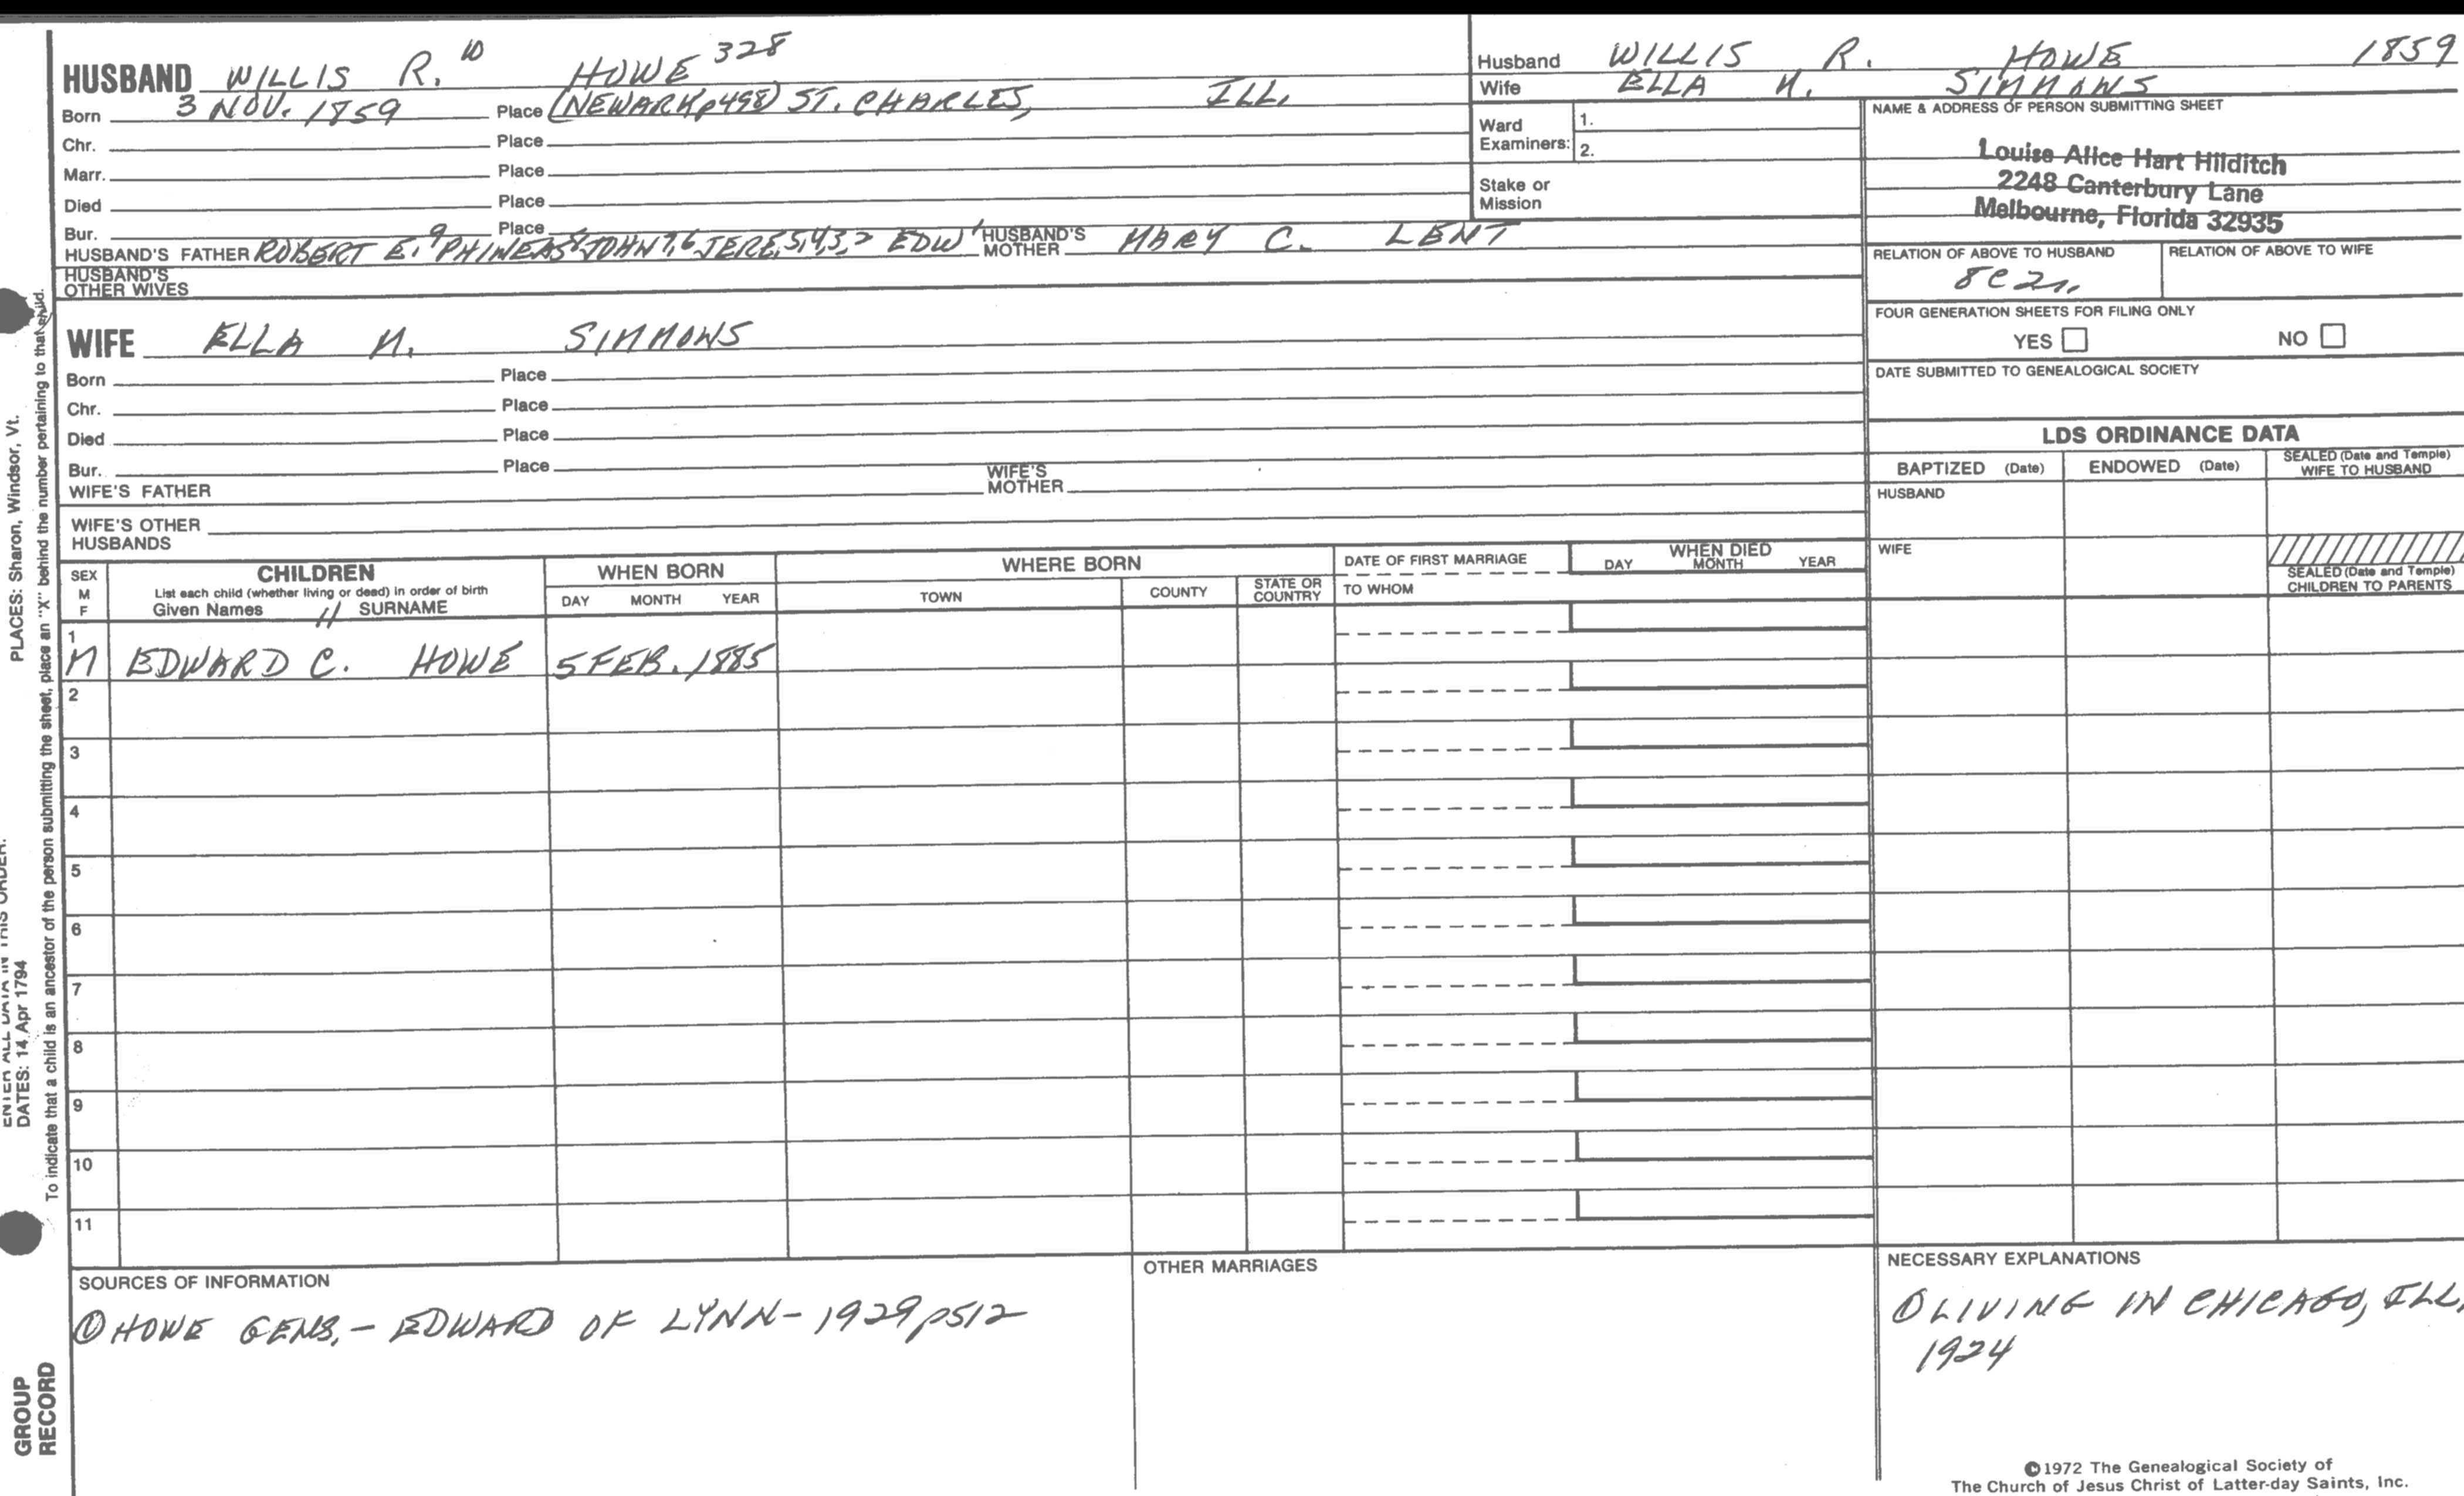 HUSBAND WILLIS R. 10 HOWE 328
Born 3 NOV. 1859 Place (NEWARK p498) ST. CHARLES, ILL.
Chr. Place
Marr. Place
Died Place
Bur. Place
HUSBAND'S FATHER ROBERT E. 9 PHINEAS 8 JOHN 7,6 JERE. 5,4,3,2 EDW 1 HUSBAND'S MOTHER MARY C. LENT
HUSBAND'S OTHER WIVES
WIFE ELLA M. SIMMONS
Born Place
Chr. Place
Died Place
Bur. Place
WIFE'S FATHER WIFE'S MOTHER
WIFE'S OTHER HUSBANDS
Husband WILLIS R. HOWE 1859
Wife ELLA M. SIMMONS
Ward Examiners: 1.
2.
Stake or Mission
NAME & ADDRESS OF PERSON SUBMITTING SHEET
Louise Alice Hart Hilditch
2248 Canterbury Lane
Melbourne, Florida 32935
RELATION OF ABOVE TO HUSBAND RELATION OF ABOVE TO WIFE
8C2r.
FOUR GENERATION SHEETS FOR FILING ONLY
YES NO
DATE SUBMITTED TO GENEALOGICAL SOCIETY
LDS ORDINANCE DATA
BAPTIZED (Date) ENDOWED (Date) SEALED (Date and Temple) WIFE TO HUSBAND
HUSBAND
WIFE
SEALED (Date and Temple) CHILDREN TO PARENTS
SEX M F
CHILDREN
List each child (whether living or dead) in order of birth
Given Names 11 SURNAME
WHEN BORN
DAY MONTH YEAR
WHERE BORN
TOWN COUNTY STATE OR COUNTRY
DATE OF FIRST MARRIAGE
TO WHOM
WHEN DIED
DAY MONTH YEAR
1
M EDWARD C. HOWE 5 FEB. 1885
2
3
4
5
6
7
8
9
10
11
SOURCES OF INFORMATION
① HOWE GENS. - EDWARD OF LYNN - 1929 p512
OTHER MARRIAGES
NECESSARY EXPLANATIONS
① LIVING IN CHICAGO, ILL,
1924
©1972 The Genealogical Society of
The Church of Jesus Christ of Latter-day Saints, Inc.
PLACES: Sharon, Windsor, Vt.
ENTER ALL DATA IN THIS ORDER:
DATES: 14 Apr 1794
To indicate that a child is an ancestor of the person submitting the sheet, place an "X" behind the number pertaining to that child.
GROUP
RECORD